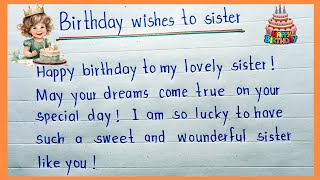 Birthday wishes to sister
HAPPY BIRTHDAY
Happy birthday to my lovely sister!
May your dreams come true on your
special day! I am so lucky to have
such a sweet and wounderful sister
like you!